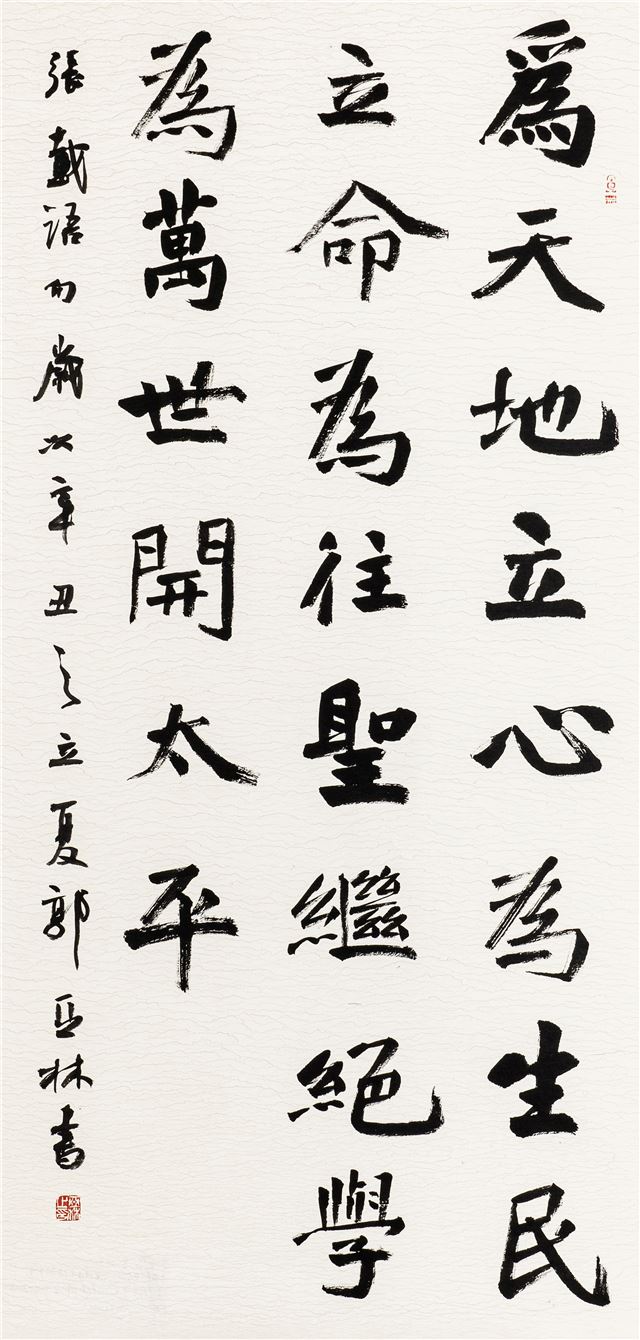 爲天地立心為生民
立命為往聖繼絕學
為萬世開太平
張載語句歲次辛丑之立夏郭亞林書